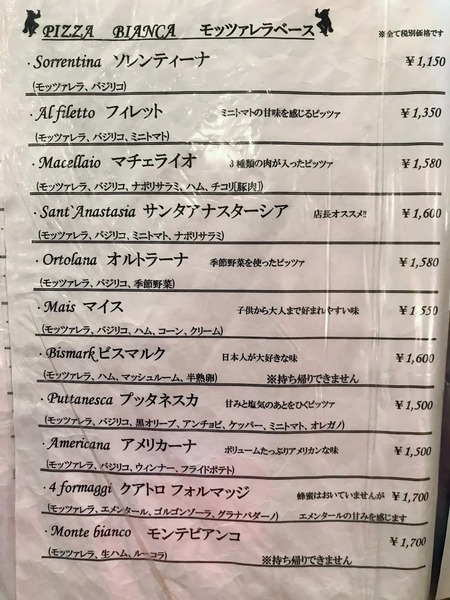 PIZZA BIANCA モッツァレラベース ※全て税別価格です
・Sorrentina ソレンティーナ ¥1,150
(モッツァレラ、バジリコ)
・Al filetto フィレット ミニトマトの甘味を感じるピッツァ ¥1,350
(モッツァレラ、バジリコ、ミニトマト)
・Macellaio マチェライオ 3種類の肉が入ったピッツァ ¥1,580
(モッツァレラ、バジリコ、ナポリサラミ、ハム、チコリ[豚肉])
・Sant`Anastasia サンタアナスターシア 店長オススメ!! ¥1,600
(モッツァレラ、バジリコ、ミニトマト、ナポリサラミ)
・Ortolana オルトラーナ 季節野菜を使ったピッツァ ¥1,580
(モッツァレラ、バジリコ、季節野菜)
・Mais マイス 子供から大人まで好まれやすい味 ¥1,550
(モッツァレラ、バジリコ、ハム、コーン、クリーム)
・Bismark ビスマルク 日本人が大好きな味 ¥1,600
(モッツァレラ、ハム、マッシュルーム、半熟卵) ※持ち帰りできません
・Puttanesca プッタネスカ 甘みと塩気のあとをひくピッツァ ¥1,500
(モッツァレラ、バジリコ、黒オリーブ、アンチョビ、ケッパー、ミニトマト、オレガノ)
・Americana アメリカーナ ボリュームたっぷりアメリカンな味 ¥1,500
(モッツァレラ、バジリコ、ウィンナー、フライドポテト)
・4 formaggi クアトロ フォルマッジ 蜂蜜はおいていませんが ¥1,700
(モッツァレラ、エメンタール、ゴルゴンゾーラ、グラナパダーノ) エメンタールの甘みを感じます
・Monte bianco モンテビアンコ ¥1,700
(モッツァレラ、生ハム、ルーコラ) ※持ち帰りできません